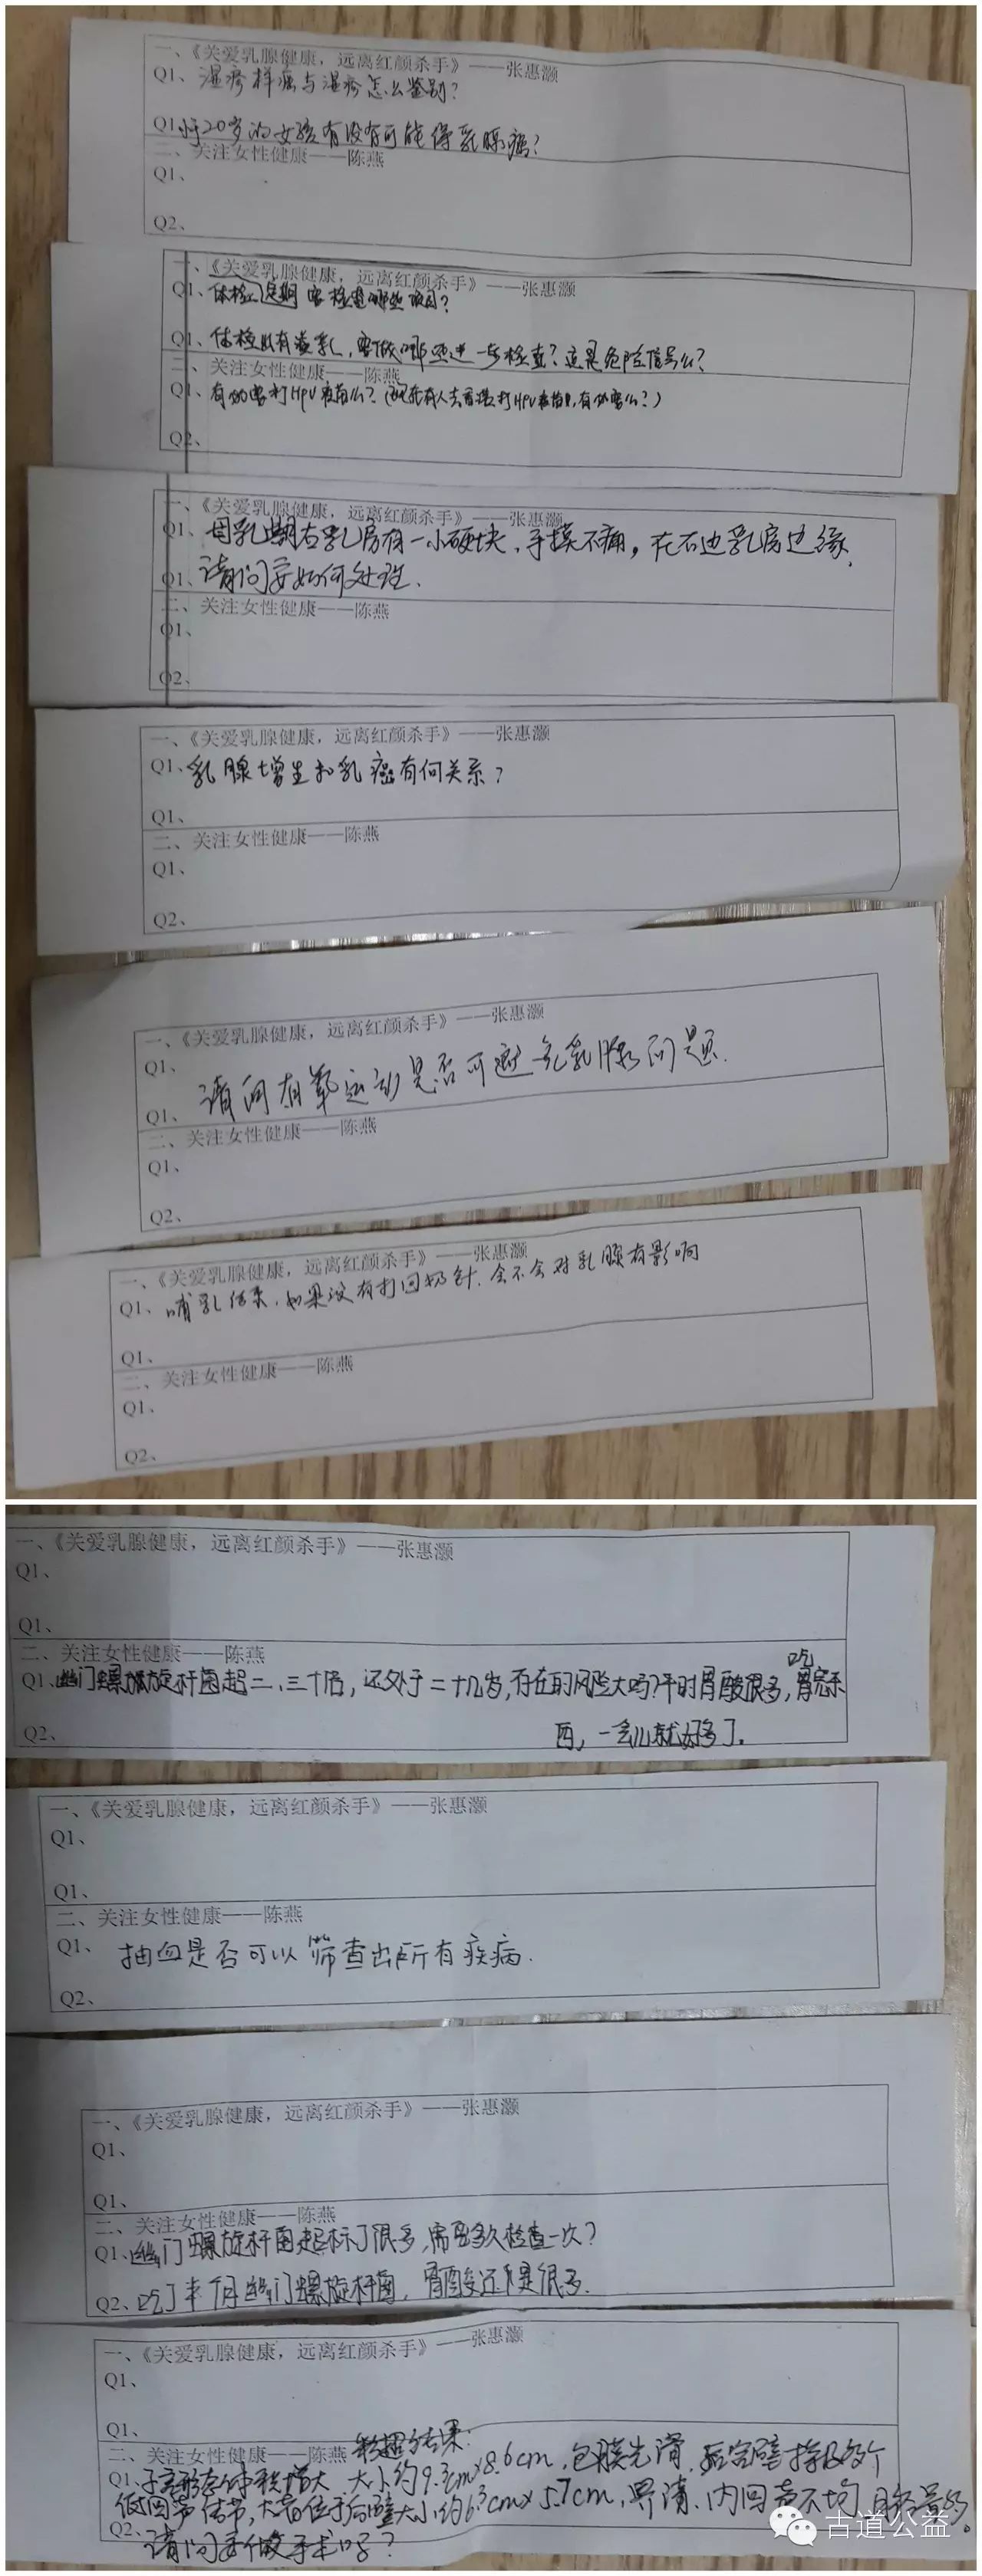 一、《关爱乳腺健康，远离红颜杀手》——张惠灏
Q1、湿疹样癌与湿疹怎么鉴别？
Q1、小于20岁的女孩有没有可能得乳腺癌？
二、关注女性健康——陈燕
Q1、
Q2、
一、《关爱乳腺健康，远离红颜杀手》——张惠灏
Q1、体检定期需检查哪些项目？
Q1、体检时有溢乳，需做哪些进一步检查？这是危险信号么？
二、关注女性健康——陈燕
Q1、有必要打HPV疫苗么？（现在有人去香港打HPV疫苗，有必要么？）
Q2、
一、《关爱乳腺健康，远离红颜杀手》——张惠灏
Q1、母乳期右乳房有一小硬块、手摸不痛，在右边乳房边缘，
Q1、请问要如何处理.
二、关注女性健康——陈燕
Q1、
Q2、
一、《关爱乳腺健康，远离红颜杀手》——张惠灏
Q1、乳腺增生和乳癌有何关系？
Q1、
二、关注女性健康——陈燕
Q1、
Q2、
一、《关爱乳腺健康，远离红颜杀手》——张惠灏
Q1、
请问有氧运动是否可避免乳腺问题.
Q1、
二、关注女性健康——陈燕
Q1、
Q2、
一、《关爱乳腺健康，远离红颜杀手》——张惠灏
Q1、哺乳结束，如果没有打回奶针，会不会对乳腺有影响
Q1、
二、关注女性健康——陈燕
Q1、
Q2、
一、《关爱乳腺健康，远离红颜杀手》——张惠灏
Q1、
Q1、
二、关注女性健康——陈燕
吃
Q1、幽门螺旋杆菌超二、三十倍，还处于二十几岁，存在的风险大吗？平时胃酸很多，胃完东
Q2、西，一会儿就好多了。
一、《关爱乳腺健康，远离红颜杀手》——张惠灏
Q1、
Q1、
二、关注女性健康——陈燕
Q1、抽血是否可以筛查出所有疾病.
Q2、
一、《关爱乳腺健康，远离红颜杀手》——张惠灏
Q1、
Q1、
二、关注女性健康——陈燕
Q1、幽门螺旋杆菌超标了很多，需要多久检查一次？
Q2、吃了半个月幽门螺旋杆菌，胃酸还是很多.
一、《关爱乳腺健康，远离红颜杀手》——张惠灏
Q1、
Q1、
二、关注女性健康——陈燕 彩超结果：
Q1、子宫形态体积增大，大小约9.3cm×8.6cm，包膜光滑，后宫壁探及多个
低回声结节，大者位于后壁大小约6.3cm×5.7cm，界清、内回声不均，
Q2、请问要做手术吗？
古道公益